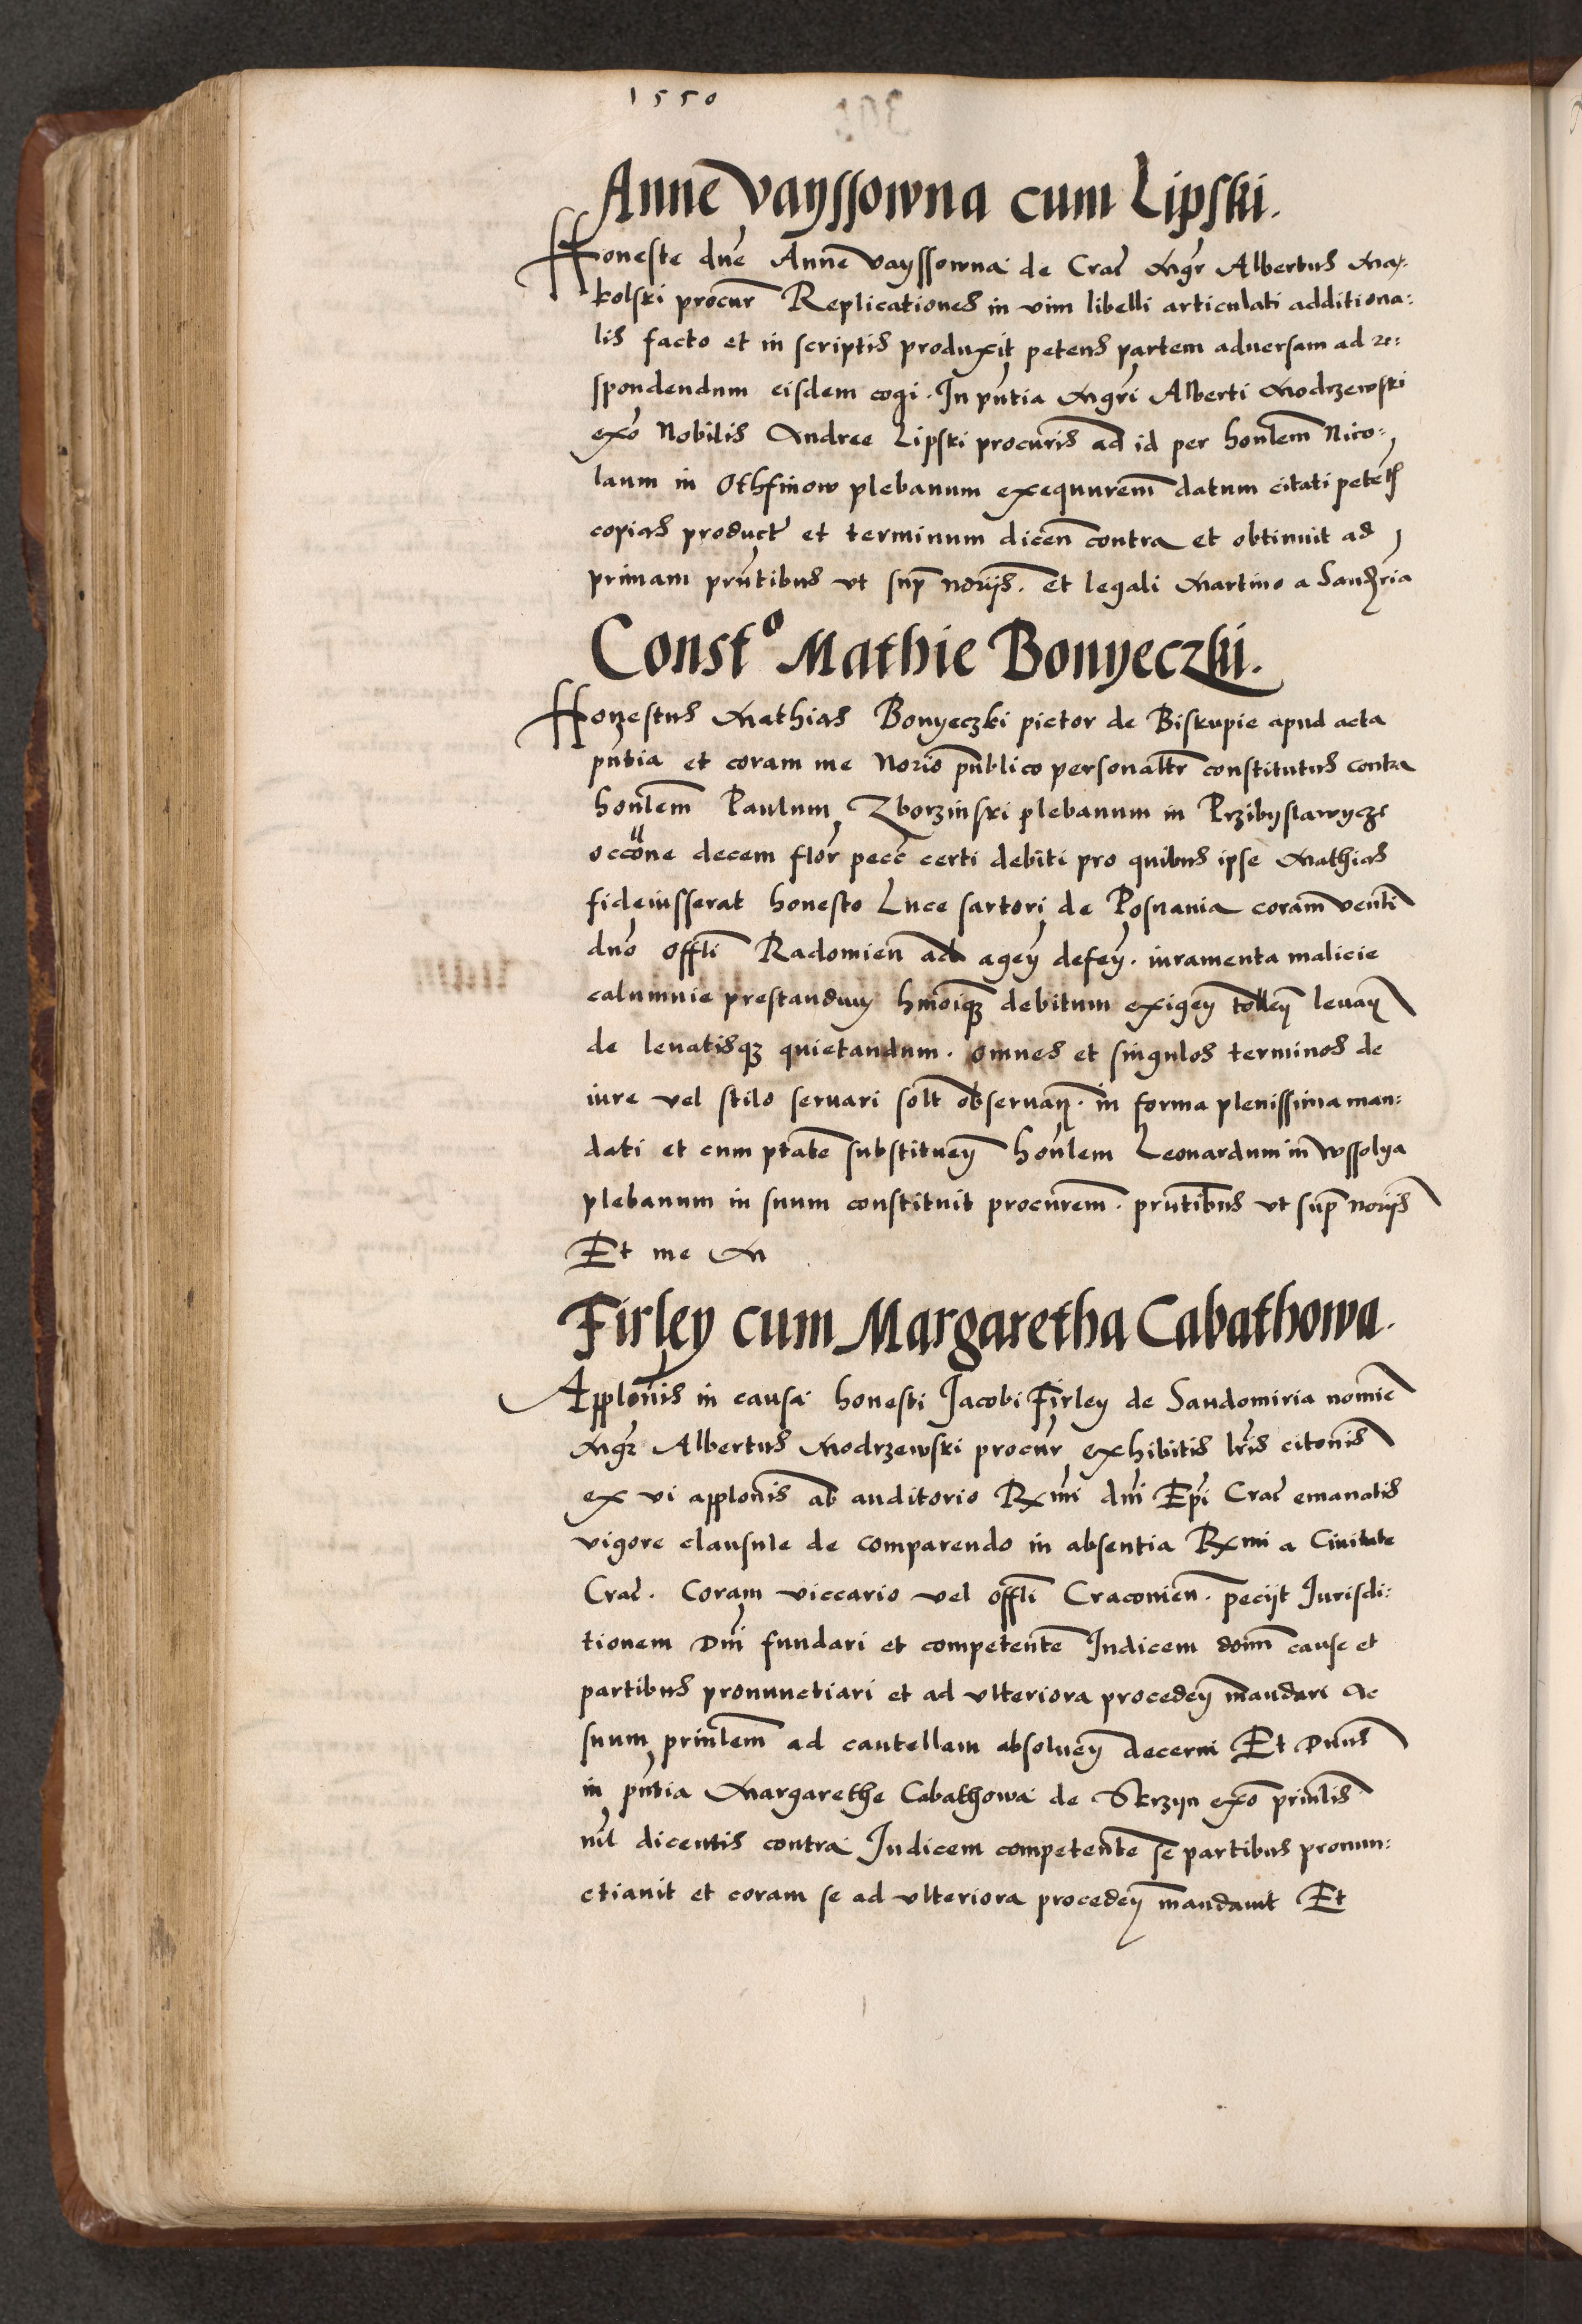 1550
Anne Vayssowna cum Lipski.
Honeste dne Anne Vayssowna de Crac Mgr Albertus Ma=
kolski procur Replicationes in vim libelli articulati additiona:
lis facto et in scriptis produxit petens partem adversam ad re:
spondendum eisdem cogi. In pntia Mgri Alberti Modrzewski
exo Nobilis Andree Lipski procuris ad id per honlem Nico=
laum in Othfinow plebanum exequurem datum citati petens
copias product et terminum dicen contra et obtinuit ad
primam prntibus ut sup noriis. et legali Martino a
Constº Mathie Bonyeczki.
Honestus Mathias Bonyeczki pictor de Biskupie apud acta
pntia et coram me Norio publico personaltr constitutus contra
honlem Paulum Zborzinski plebanum in Przibyslawycze
occone decem flor pecc certi debiti pro quibus ipse Mathias
fideiusserat honesto Luce sartori de Posnania coram venli
dno Offli Radomien ad agen defen. iuramenta malicie
calumnie prestandum hmoique debitum exigen tollen levan
de levatisque quietandum. omnes et singulos terminos de
iure vel stilo servari solt observan. in forma plenissima man:
dati et cum ptate substituen honlem Leonardum in Wssolya
plebanum in suum constituit procurem. prntibus ut sup noriis
Et me M
Firley cum Margaretha Cabathowa.
Applonis in causa honesti Jacobi Firley de Sandomiria nomine
Mgr Albertus Modrzewski procur exhibitis lris citonis
ex vi applonis ab auditorio Rxmi dni Epi Crac emanatis
vigore clausule de comparendo in absentia Rxmi a Civitate
Crac. Coram viccario vel offli Cracovien. peciit Jurisdi:
tionem Dni fundari et competentem Judicem cause et
partibus pronunctiari et ad ulteriora proceden mandari Ac
suum prinlem ad cautellam absolven decerni Et Dnus
in pntia Margarethe Cabathowa de Skrzyn exo prinlis
nil dicentis contra Judicem competente se partibus pronun:
ctiavit et coram se ad ulteriora proceden mandavit Et